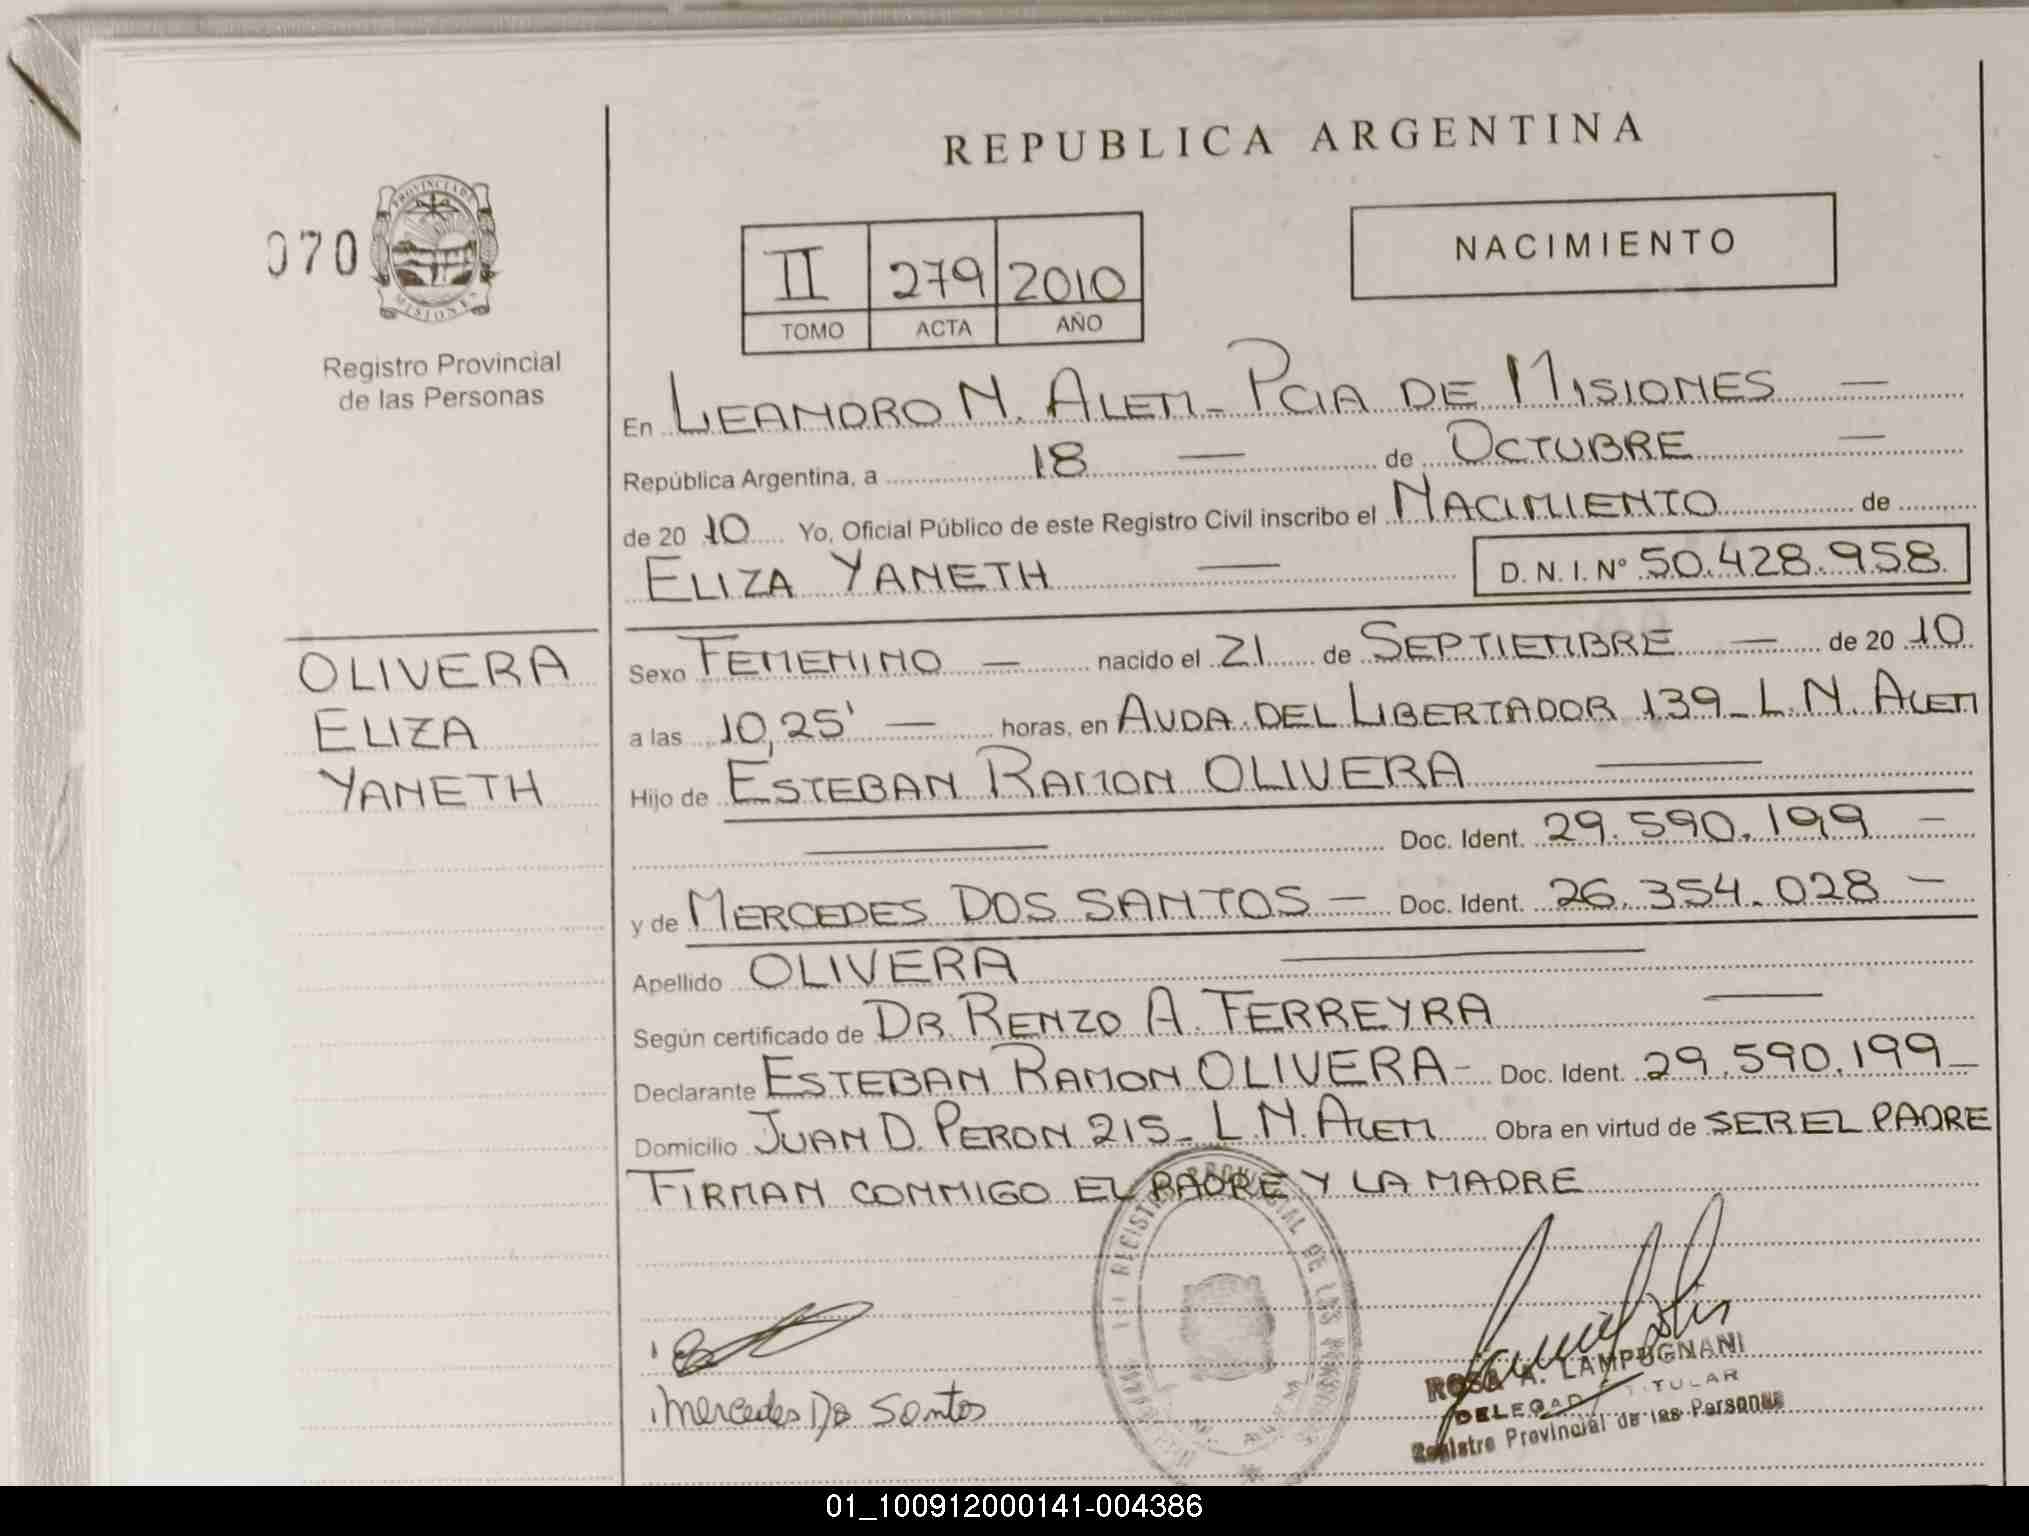 REPUBLICA ARGENTINA
070
PROVINCIA DE MISIONES
Registro Provincial
de las Personas
II 279 2010
TOMO ACTA AÑO
NACIMIENTO
En LEANDRO N. ALEM - PCIA DE MISIONES —
República Argentina, a 18 — de OCTUBRE —
de 20 10 Yo, Oficial Público de este Registro Civil inscribo el NACIMIENTO de
ELIZA YANETH — D. N. I. Nº 50.428.958
OLIVERA
ELIZA
YANETH
Sexo FEMENINO — nacido el 21 de SEPTIEMBRE — de 20 10
a las 10,25' — horas, en AVDA. DEL LIBERTADOR 139 - L. N. ALEM
Hijo de ESTEBAN RAMON OLIVERA —
— Doc. Ident. 29.590.199 —
y de MERCEDES DOS SANTOS — Doc. Ident. 26.354.028 —
Apellido OLIVERA —
Según certificado de DR. RENZO A. FERREYRA —
Declarante ESTEBAN RAMON OLIVERA - Doc. Ident. 29.590.199 -
Domicilio JUAN D. PERON 215 - L. N. ALEM Obra en virtud de SER EL PADRE
FIRMAN CONMIGO EL PADRE Y LA MADRE
REGISTRO PROVINCIAL DE LAS
Mercedes Do Santos
ROSA A. LAMPUGNANI
DELEGADA TITULAR
Registro Provincial de las Personas
01_100912000141-004386